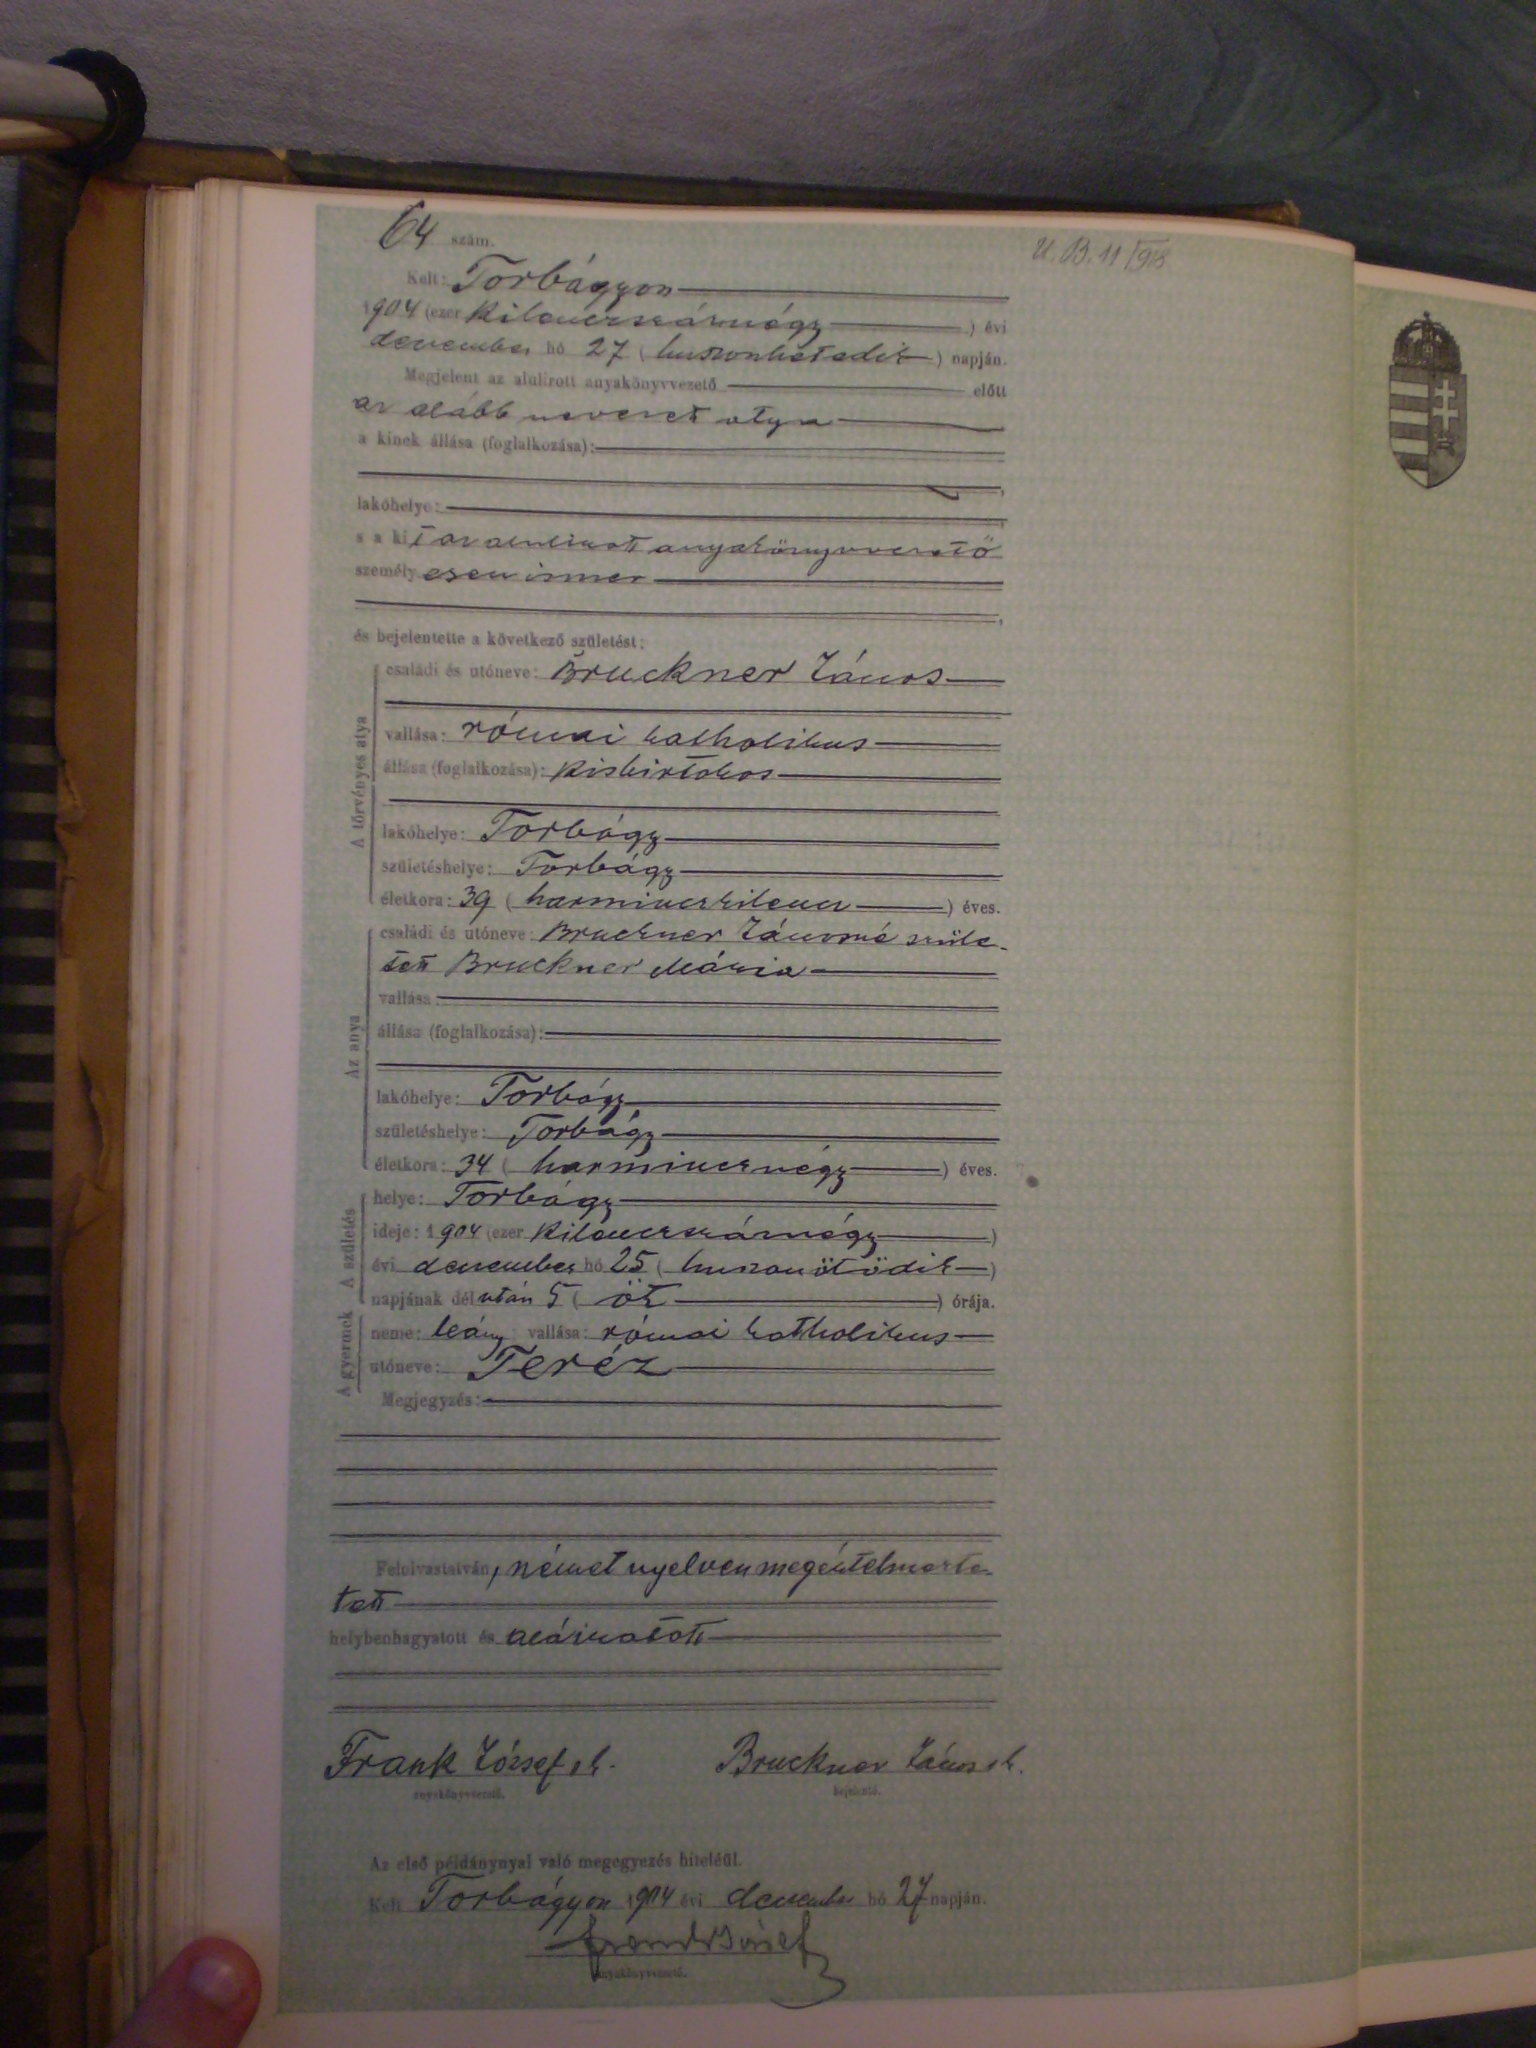 64 szám.
U. B. 11/918
Kelt: Torbágyon
1904 (ezer kilenczszáznégy) évi
deczember hó 27 (huszonhetedik) napján.
Megjelent az alulírott anyakönyvvezető előtt
az alább nevezett atya
a kinek állása (foglalkozása):
lakóhelye:
s a kit az alulirott anyakönyvvezető
személyesen ismer
és bejelentette a következő születést:
A törvényes atya
családi és utóneve: Bruckner János
vallása: római katholikus
állása (foglalkozása): kisbirtokos
lakóhelye: Torbágy
születéshelye: Torbágy
életkora: 39 (harminczkilencz) éves.
Az anya
családi és utóneve: Bruckner Jánosné szüle-
tett Bruckner Mária
vallása:
állása (foglalkozása):
lakóhelye: Torbágy
születéshelye: Torbágy
életkora: 34 (harmincznégy) éves.
A születés
helye: Torbágy
ideje: 1904 (ezer kilenczszáznégy)
évi deczember hó 25 (huszonötödik)
napjának délután 5 (öt) órája.
A gyermek
neme: leány vallása: római katholikus
utóneve: Teréz
Megjegyzés:
Felolvastatván, német nyelven megértelmezte-
tett
helybenhagyatott és aláiratott
Frank József s.k. Bruckner János s.k.
anyakönyvvezető. bejelentő.
Az első példánynyal való megegyezés hiteléül.
Kelt Torbágyon 1904 évi deczember hó 27 napján.
Frank József
anyakönyvvezető.